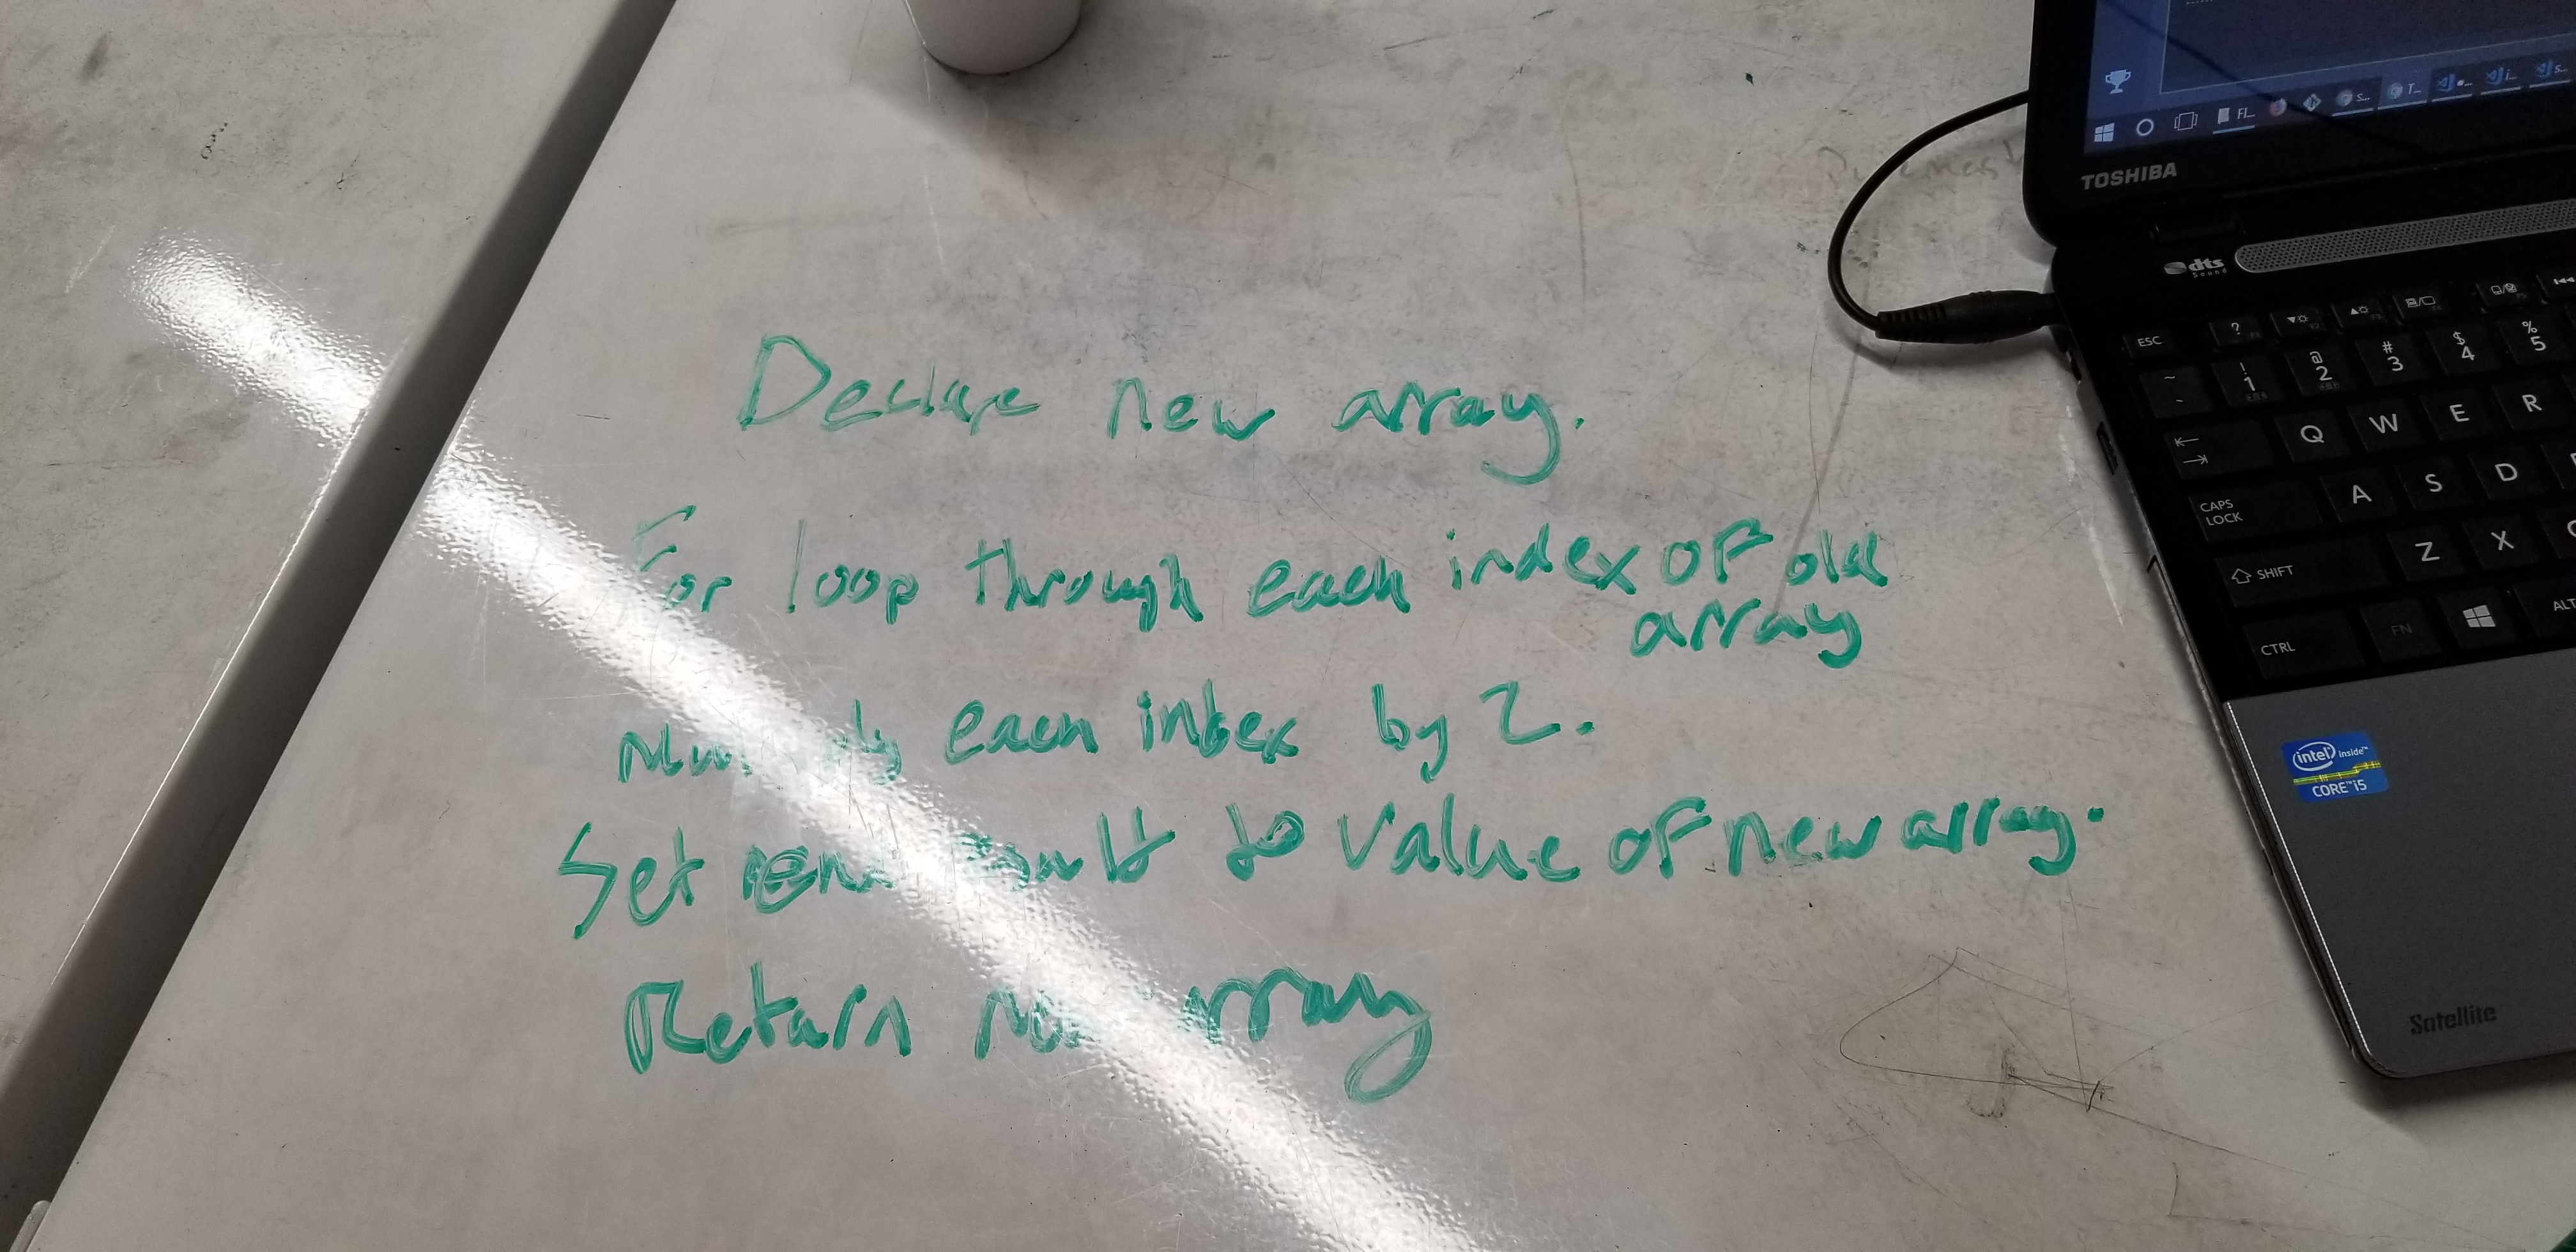 Declare new array.
For loop through each index of old
array
Multiply each index by 2.
Set end result to value of new array.
Return new array
FI...
S...
T...
i...
S...
TOSHIBA
dts
Sound
ESC
?
~
!
1
@
2
#
3
$
4
%
5
Q W E R
CAPS
LOCK
A S D
SHIFT
Z X
CTRL
FN
ALT
intel inside™
CORE™ i5
Satellite